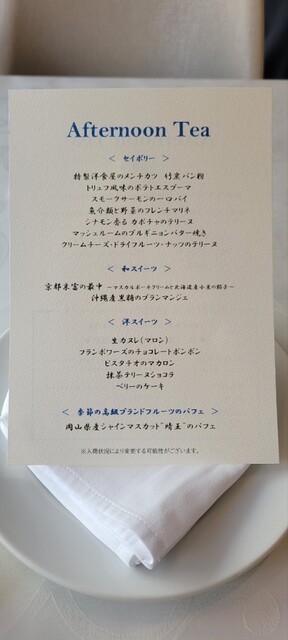 Afternoon Tea
＜ セイボリー ＞
特製洋食屋のメンチカツ 竹炭パン粉
トリュフ風味のポテトエスプーマ
スモークサーモンの一口パイ
魚介類と野菜のフレンチマリネ
シナモン香る カボチャのテリーヌ
マッシュルームのブルギニョンバター焼き
クリームチーズ・ドライフルーツ・ナッツのテリーヌ
＜ 和スイーツ ＞
京都米富の最中 ～マスカルポーネクリームと北海道産小豆の餡子～
沖縄産黒糖のブランマンジェ
＜ 洋スイーツ ＞
生カヌレ(マロン)
フランボワーズのチョコレートボンボン
ピスタチオのマカロン
抹茶テリーヌショコラ
ベリーのケーキ
＜ 季節の高級ブランドフルーツのパフェ ＞
岡山県産シャインマスカット"晴王"のパフェ
※入荷状況により変更する可能性がございます。